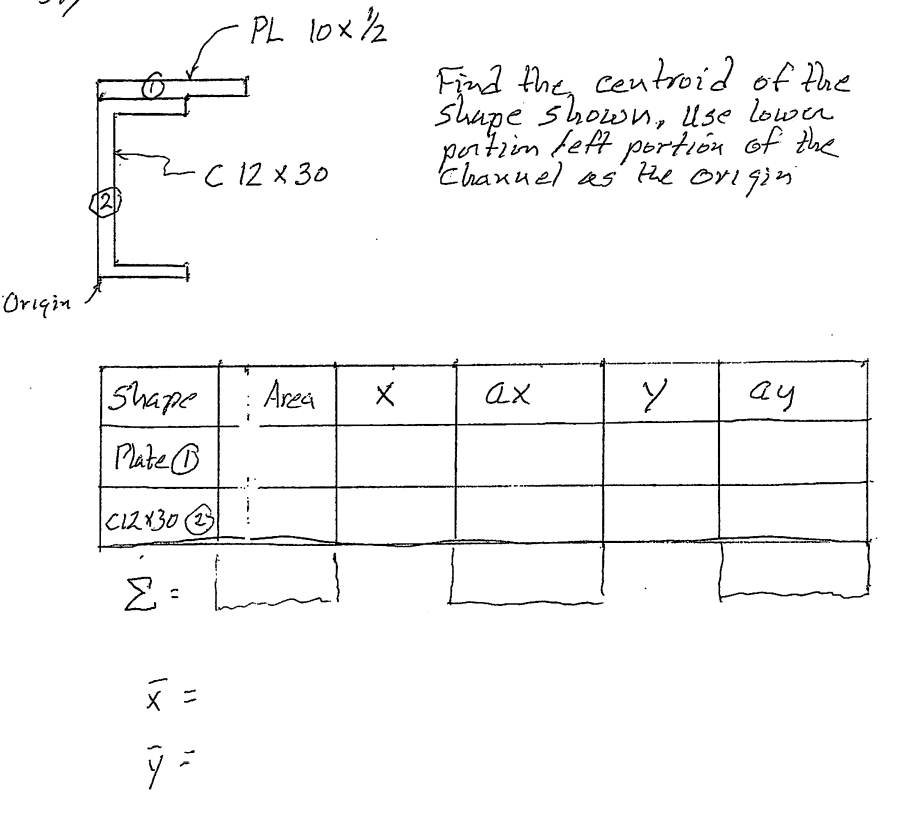 PL 10 x 1/2
①
Find the centroid of the
shape shown, Use lower
portion left portion of the
Channel as the origin
C 12 x 30
②
Origin
Shape Area X ax Y ay
Plate ①
C12x30 ②
Σ =
x̄ =
ȳ =